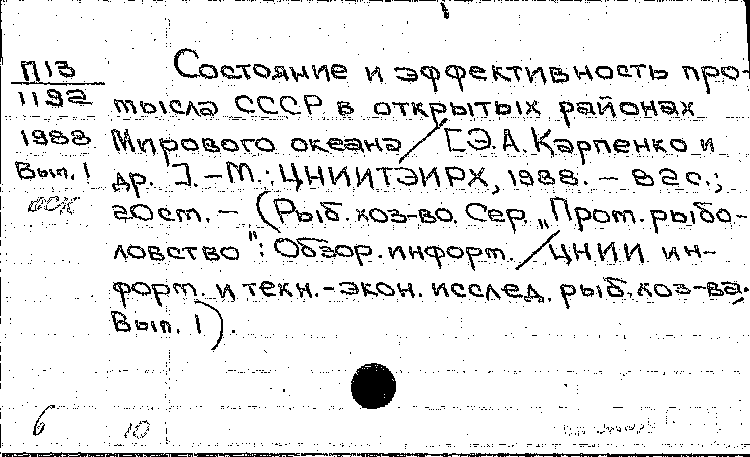 П13
1192
1988
Вып. 1
Состояние и эффективность про-
мысла СССР в открытых районах
Мирового океана / [Э.А. Карпенко и
др. ]. – М.: ЦНИИТЭИРХ, 1988. – 82 с.;
20 ст. – (Рыб. хоз-во. Сер. „Пром. рыбо-
ловство": Обзор. информ. / ЦНИИ ин-
форм. и техн.-экон. исслед. рыб. хоз-ва.
Вып. 1).
6 10